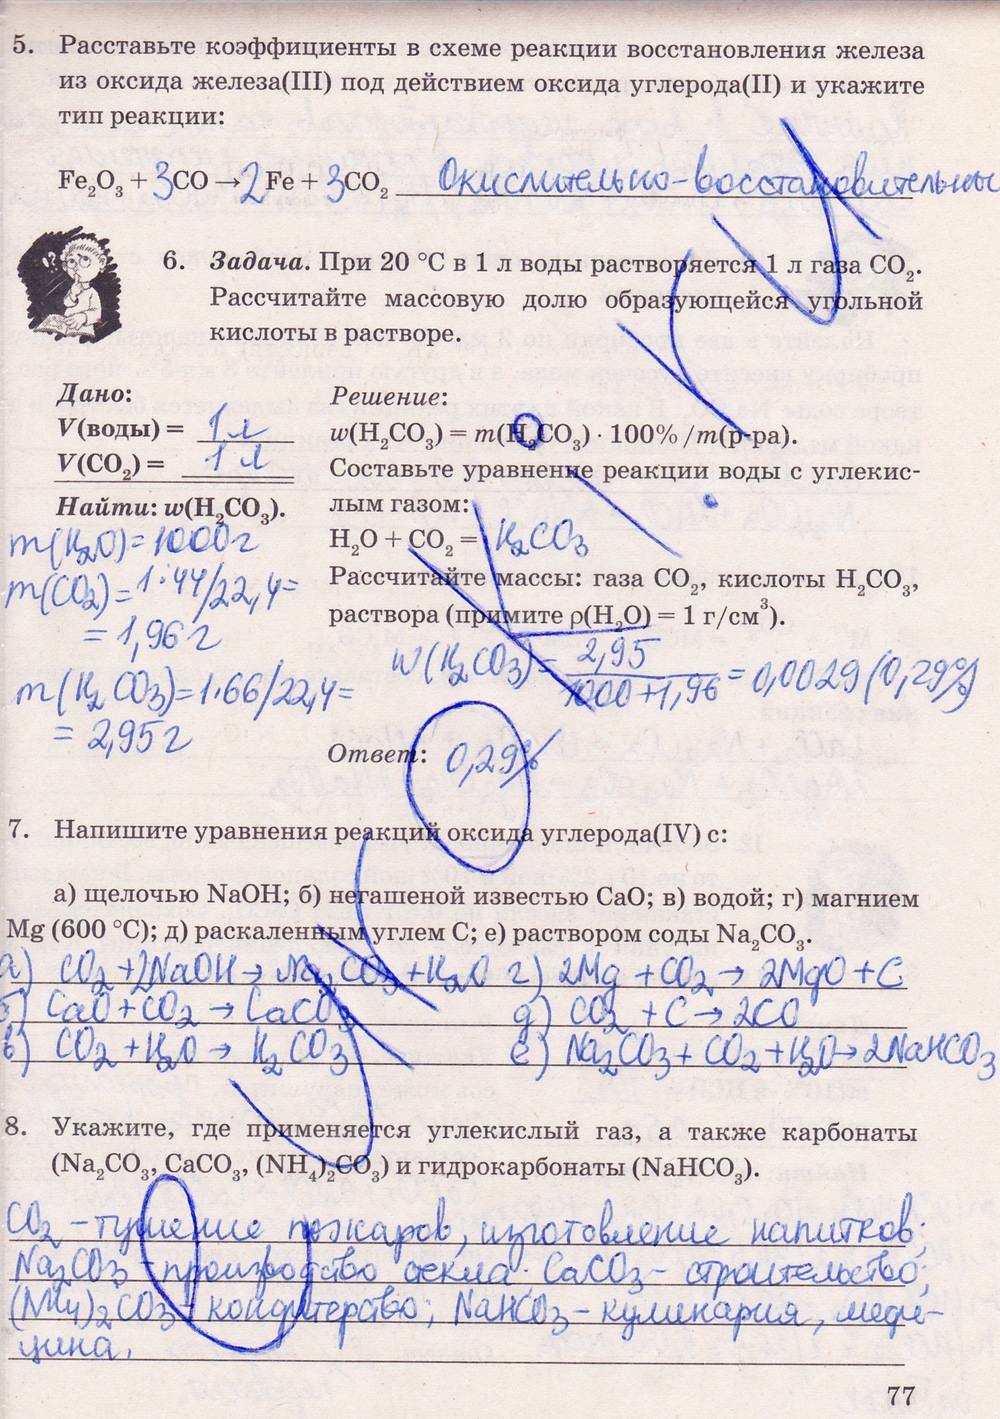 5. Расставьте коэффициенты в схеме реакции восстановления железа
из оксида железа(III) под действием оксида углерода(II) и укажите
тип реакции:
Fe₂O₃ + 3CO → 2Fe + 3CO₂ Окислительно-восстановительный
6. Задача. При 20 °C в 1 л воды растворяется 1 л газа CO₂.
Рассчитайте массовую долю образующейся угольной
кислоты в растворе.
Дано:
V(воды) = 1 л
V(CO₂) = 1 л
Найти: w(H₂CO₃).
m(H₂O)=1000г
m(CO₂)=1·44/22,4=
= 1,96 г
m(H₂CO₃)=1·66/22,4=
= 2,95 г
Решение:
w(H₂CO₃) = m(H₂CO₃) · 100% / m(р-ра).
Составьте уравнение реакции воды с углекис-
лым газом:
H₂O + CO₂ = H₂CO₃
Рассчитайте массы: газа CO₂, кислоты H₂CO₃,
раствора (примите ρ(H₂O) = 1 г/см³).
w(H₂CO₃) = 2,95 / 1000+1,96 = 0,0029 (0,29%)
Ответ: 0,29%
7. Напишите уравнения реакций оксида углерода(IV) с:
а) щелочью NaOH; б) негашеной известью CaO; в) водой; г) магнием
Mg (600 °C); д) раскаленным углем C; е) раствором соды Na₂CO₃.
а) CO₂ + 2NaOH → Na₂CO₃ + H₂O г) 2Mg + CO₂ → 2MgO + C
б) CaO + CO₂ → CaCO₃ д) CO₂ + C → 2CO
в) CO₂ + H₂O → H₂CO₃ е) Na₂CO₃ + CO₂ + H₂O → 2NaHCO₃
8. Укажите, где применяется углекислый газ, а также карбонаты
(Na₂CO₃, CaCO₃, (NH₄)₂CO₃) и гидрокарбонаты (NaHCO₃).
CO₂ – тушение пожаров, изготовление напитков;
Na₂CO₃ – производство стекла. CaCO₃ – строительство;
(NH₄)₂CO₃ – кондитерство; NaHCO₃ – кулинария, меди-
цина.
77